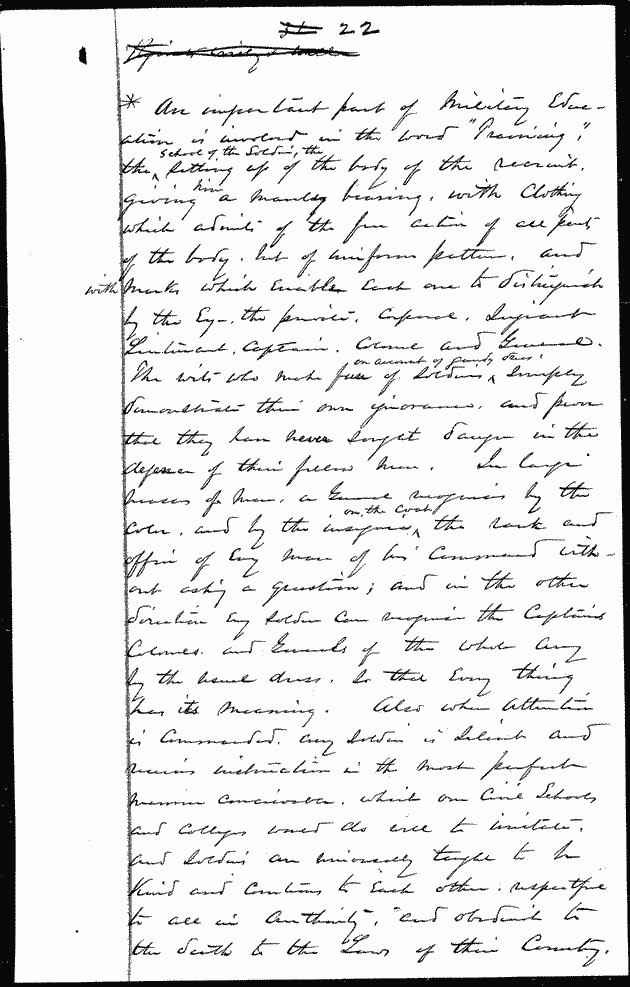 22
* An important part of Military Educ-
ation is involved in the word "Training",
school of the Soldier, the
the setting up of the body of the recruit,
giving him a manly bearing, with Clothing
which admits of the free action of all parts
of the body, but of uniform pattern, and
with marks which enable each one to distinguish
by the Eye, the private, Corporal, Sergeant
Lieutenant, Captain, Colonel and General.
on account of gaudy dress
The wits who make fun of Soldiers, simply
demonstrate their own ignorance, and prove
that they have never sought danger in the
defence of their fellow man. In large
masses of men, a General recognises by the
on the Coat
Color, and by the insignia, the rank and
office of Every man of his Command with-
out asking a question; and in the other
direction any soldier can recognise the Captains
Colonels, and Generals of the whole army
by the usual dress. So that Every thing
has its meaning. Also when Attention
is Commanded, any Soldier is Silent and
receives instruction in the most perfect
manner, which our Civil Schools
and Colleges would do well to imitate,
and Soldiers are universally taught to be
Kind and Courteous to Each other: respectful
to all in Authority, and obedient to
the death to the Laws of their Country.